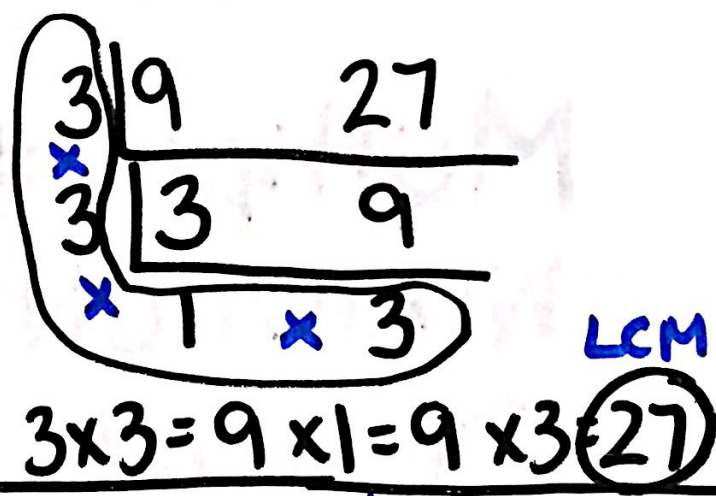 3 9 27
×
3 3 9
× 1 × 3
LCM
3×3=9×1=9×3=27